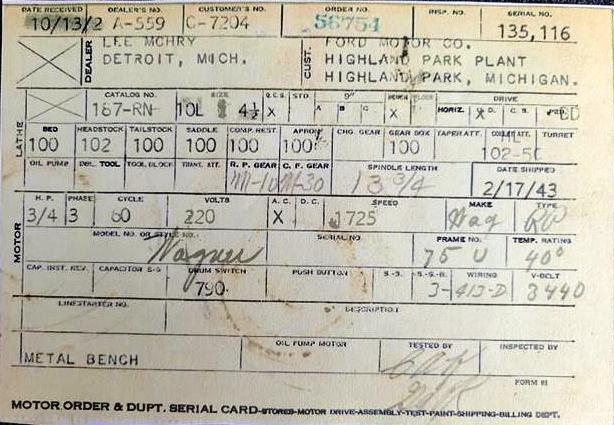 DATE RECEIVED DEALER'S NO. CUSTOMER'S NO. ORDER NO. INSP. NO. SERIAL NO.
10/13/2 A-559 C-7204 56754 135,116
DEALER LEE MCHRY CUST. FORD MOTOR CO.
DETROIT, MICH. HIGHLAND PARK PLANT
HIGHLAND PARK, MICHIGAN.
LATHE
CATALOG NO. SIZE Q.C.G. STD. 9" BENCH FLOOR DRIVE
187-RN 10L 4½ X A B C X HORIZ. X U.D. C.S.
BED HEADSTOCK TAILSTOCK SADDLE COMP. REST. APRON CHG. GEAR GEAR BOX TAPER ATT. COLLET ATT. TURRET
100 102 100 100 100 100 100 102-5C
OIL PUMP DBL. TOOL TOOL BLOCK TRANS. ATT. R. P. GEAR C. F. GEAR SPINDLE LENGTH DATE SHIPPED
M-10 M-30 13 3/4 2/17/43
MOTOR
H. P. PHASE CYCLE VOLTS A. C. D. C. SPEED MAKE TYPE
3/4 3 60 220 X 1725 Wag RP
MODEL NO. OR STYLE NO. SERIAL NO. FRAME NO. TEMP. RATING
Wagner 75 U 40°
CAP. INST. REV. CAPACITOR S-S DRUM SWITCH PUSH BUTTON S.-S. S.-S.-R. WIRING V-BELT
790 3-413-D 3440
LINESTARTER NO. DESCRIPTION
OIL PUMP MOTOR TESTED BY INSPECTED BY
METAL BENCH
FORM 81
MOTOR ORDER & DUPT. SERIAL CARD-STORES-MOTOR DRIVE-ASSEMBLY-TEST-PAINT-SHIPPING-BILLING DEPT.